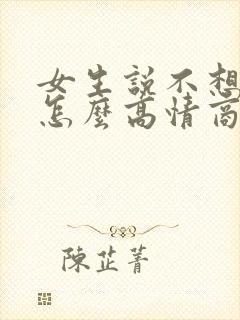 女生説不想
怎麼高情商
陳芷菁